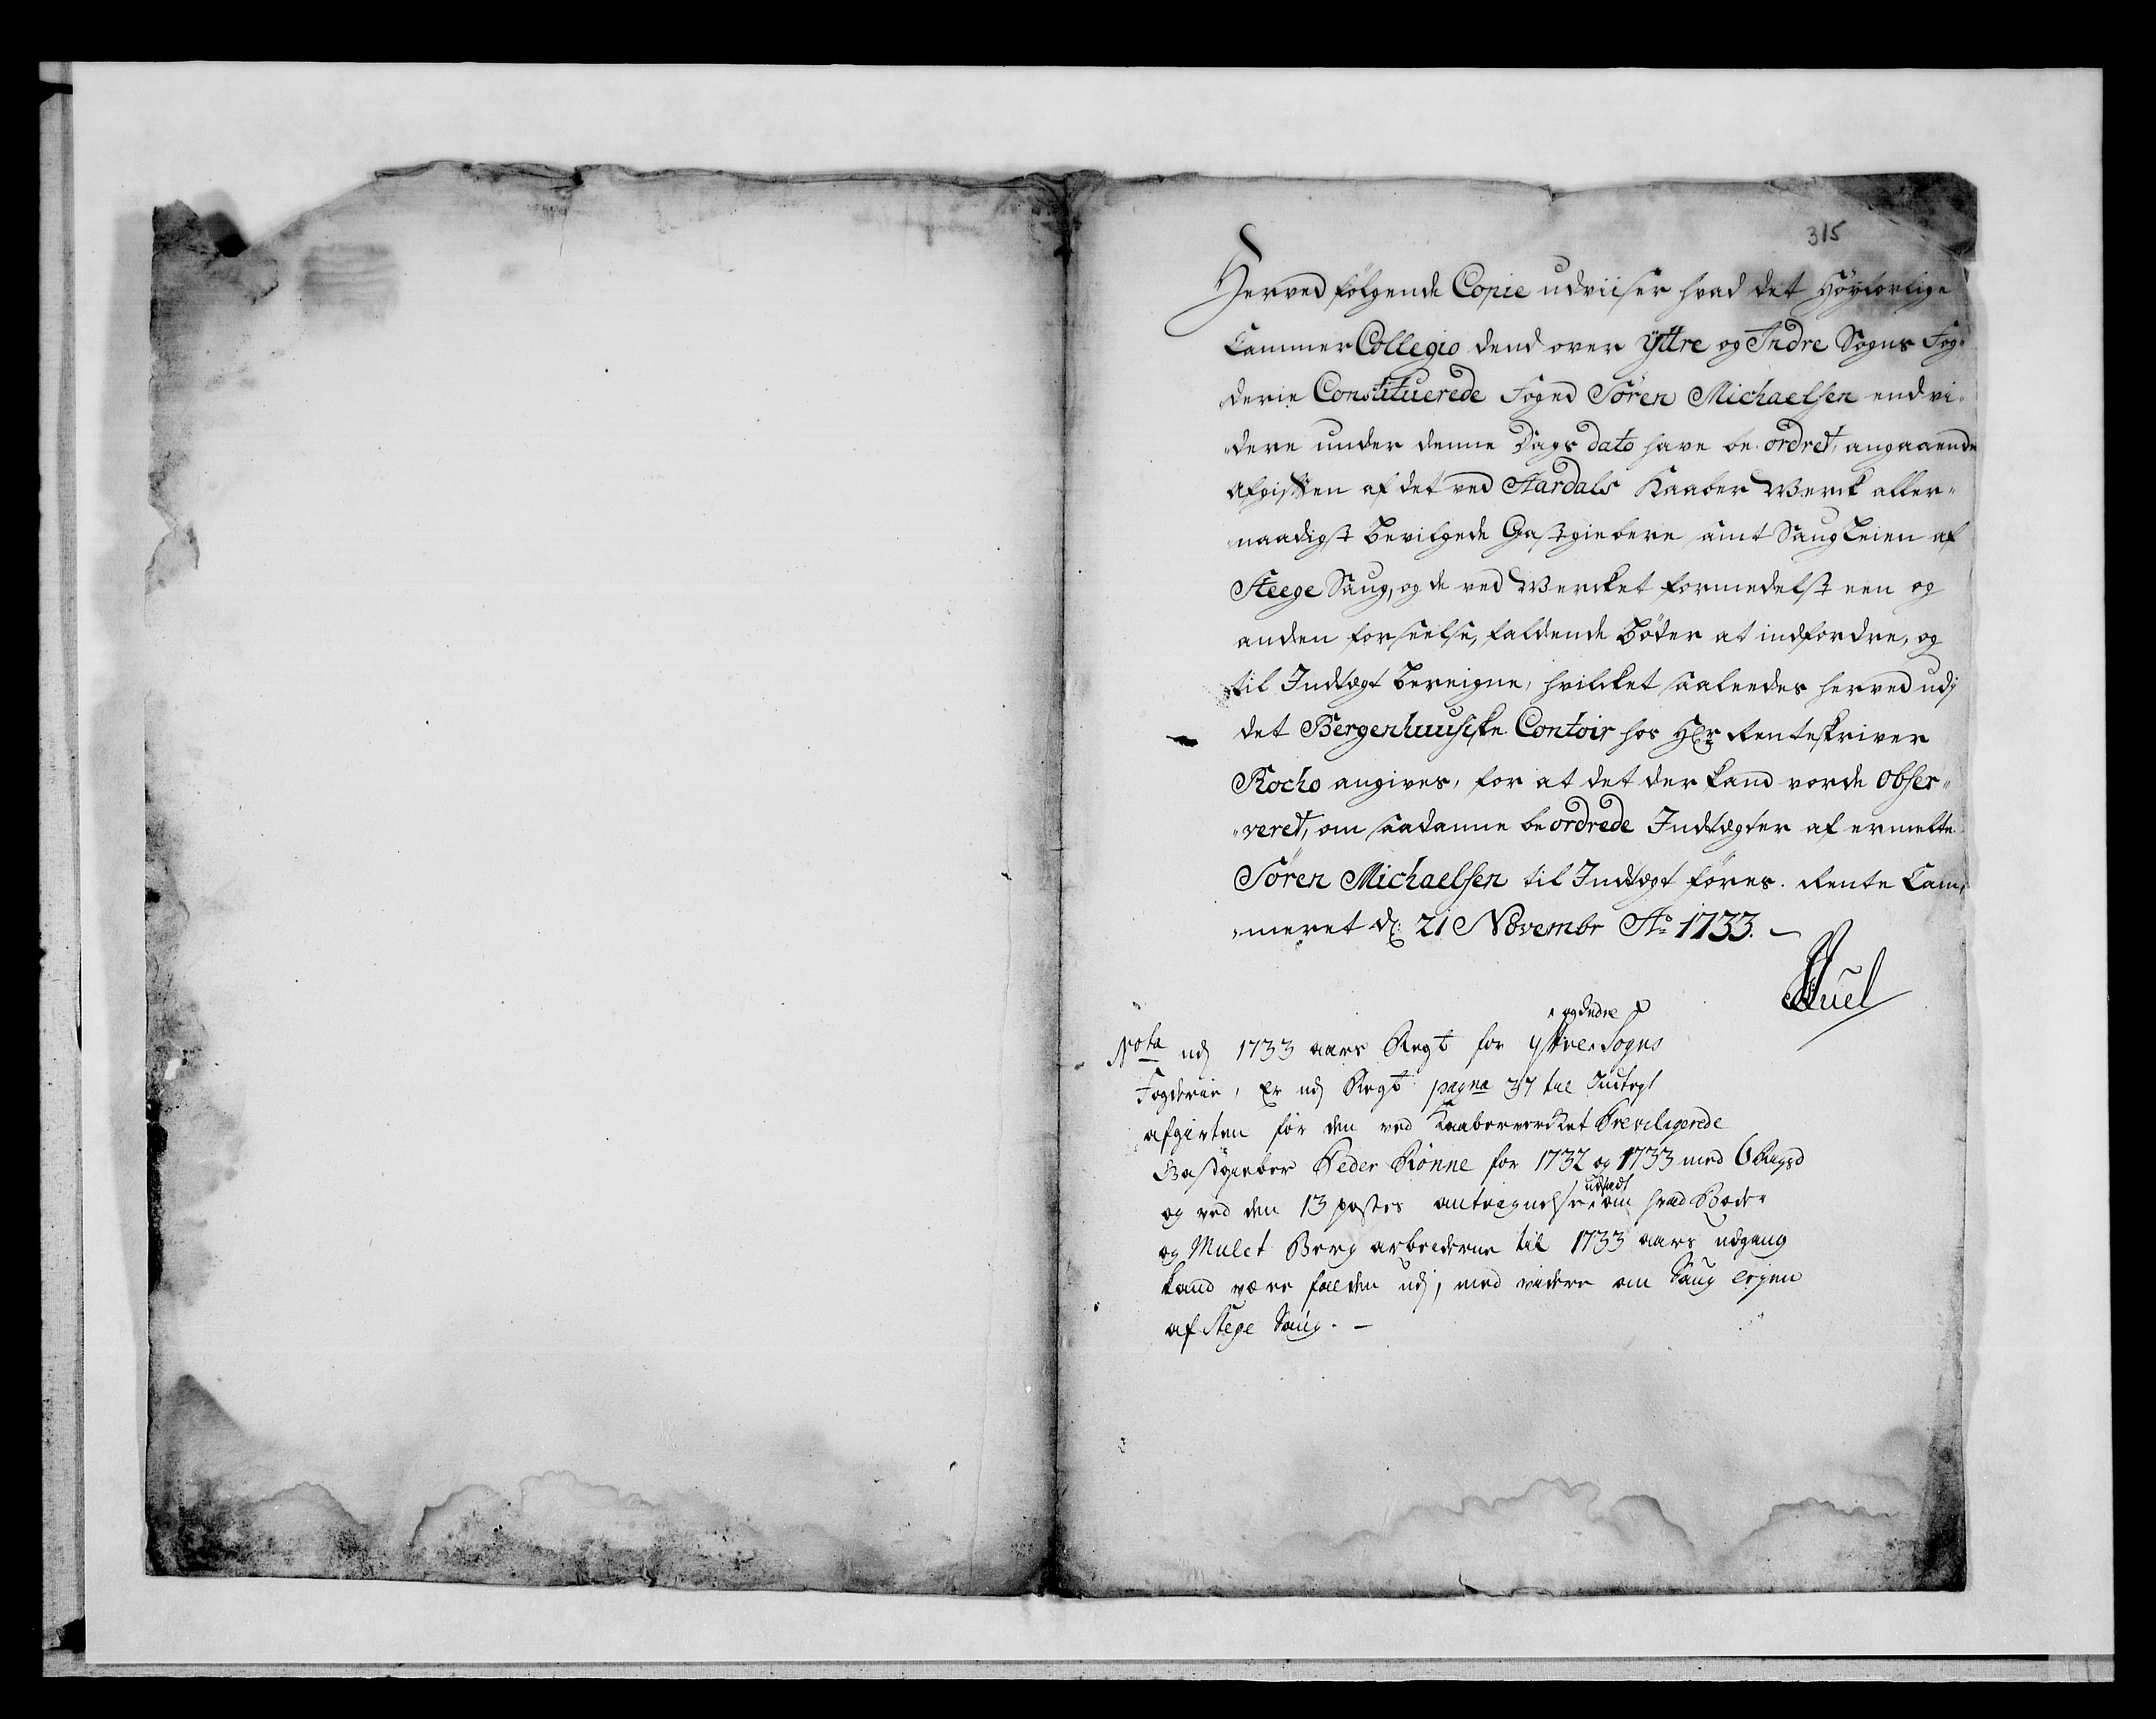 315
Herved følgende Copie udviiser hvad det Høylovlige
Cammer Collegio dend over Ÿttre og Indre Sogns Fog¬
derie Constituerede Foged Sören Michaelsen endvi¬
dere under denne Dags dato have be ordret, angaaende
Afgiften af det ved Aardals Kaaber Werck aller¬
naadigst bevilgede Gastgiebere samt Saugleien af
Steege Saug, og de ved Wercket formedelst een og
anden forseelse, faldende Bøder at indfordre, og
til Indtægt Bereigne, hvilcket saaleedes herved udj
det Bergenhuusiske Contoir hos Hr Renteskriver
Rocho angives, for at det der kand vorde obser¬
veret, om saadanne beordrede Indtægter af ermelte
Sören Michaelsen til Indtægt føres. Rente Cam¬
meret d: 21 Novembr Ao 1733.
Juel
og Indre
Nota udj 1733 aars Regt for Ÿttre Sogns
Fogderie, Er udj Regt pagna 37 til Indtegt
afgivten for den ved Kaaberverket Previligerede
Gastgieber Peder Rönne for 1732 og 1733 med 6 Rixd
udsadt
og ved den 13 postes antegnelse om hvad Bøder
og Mulct Berg arbeiderne til 1733 aars udgang
kand være falden udj, med videre om Saug leyen
af Stege Saug.